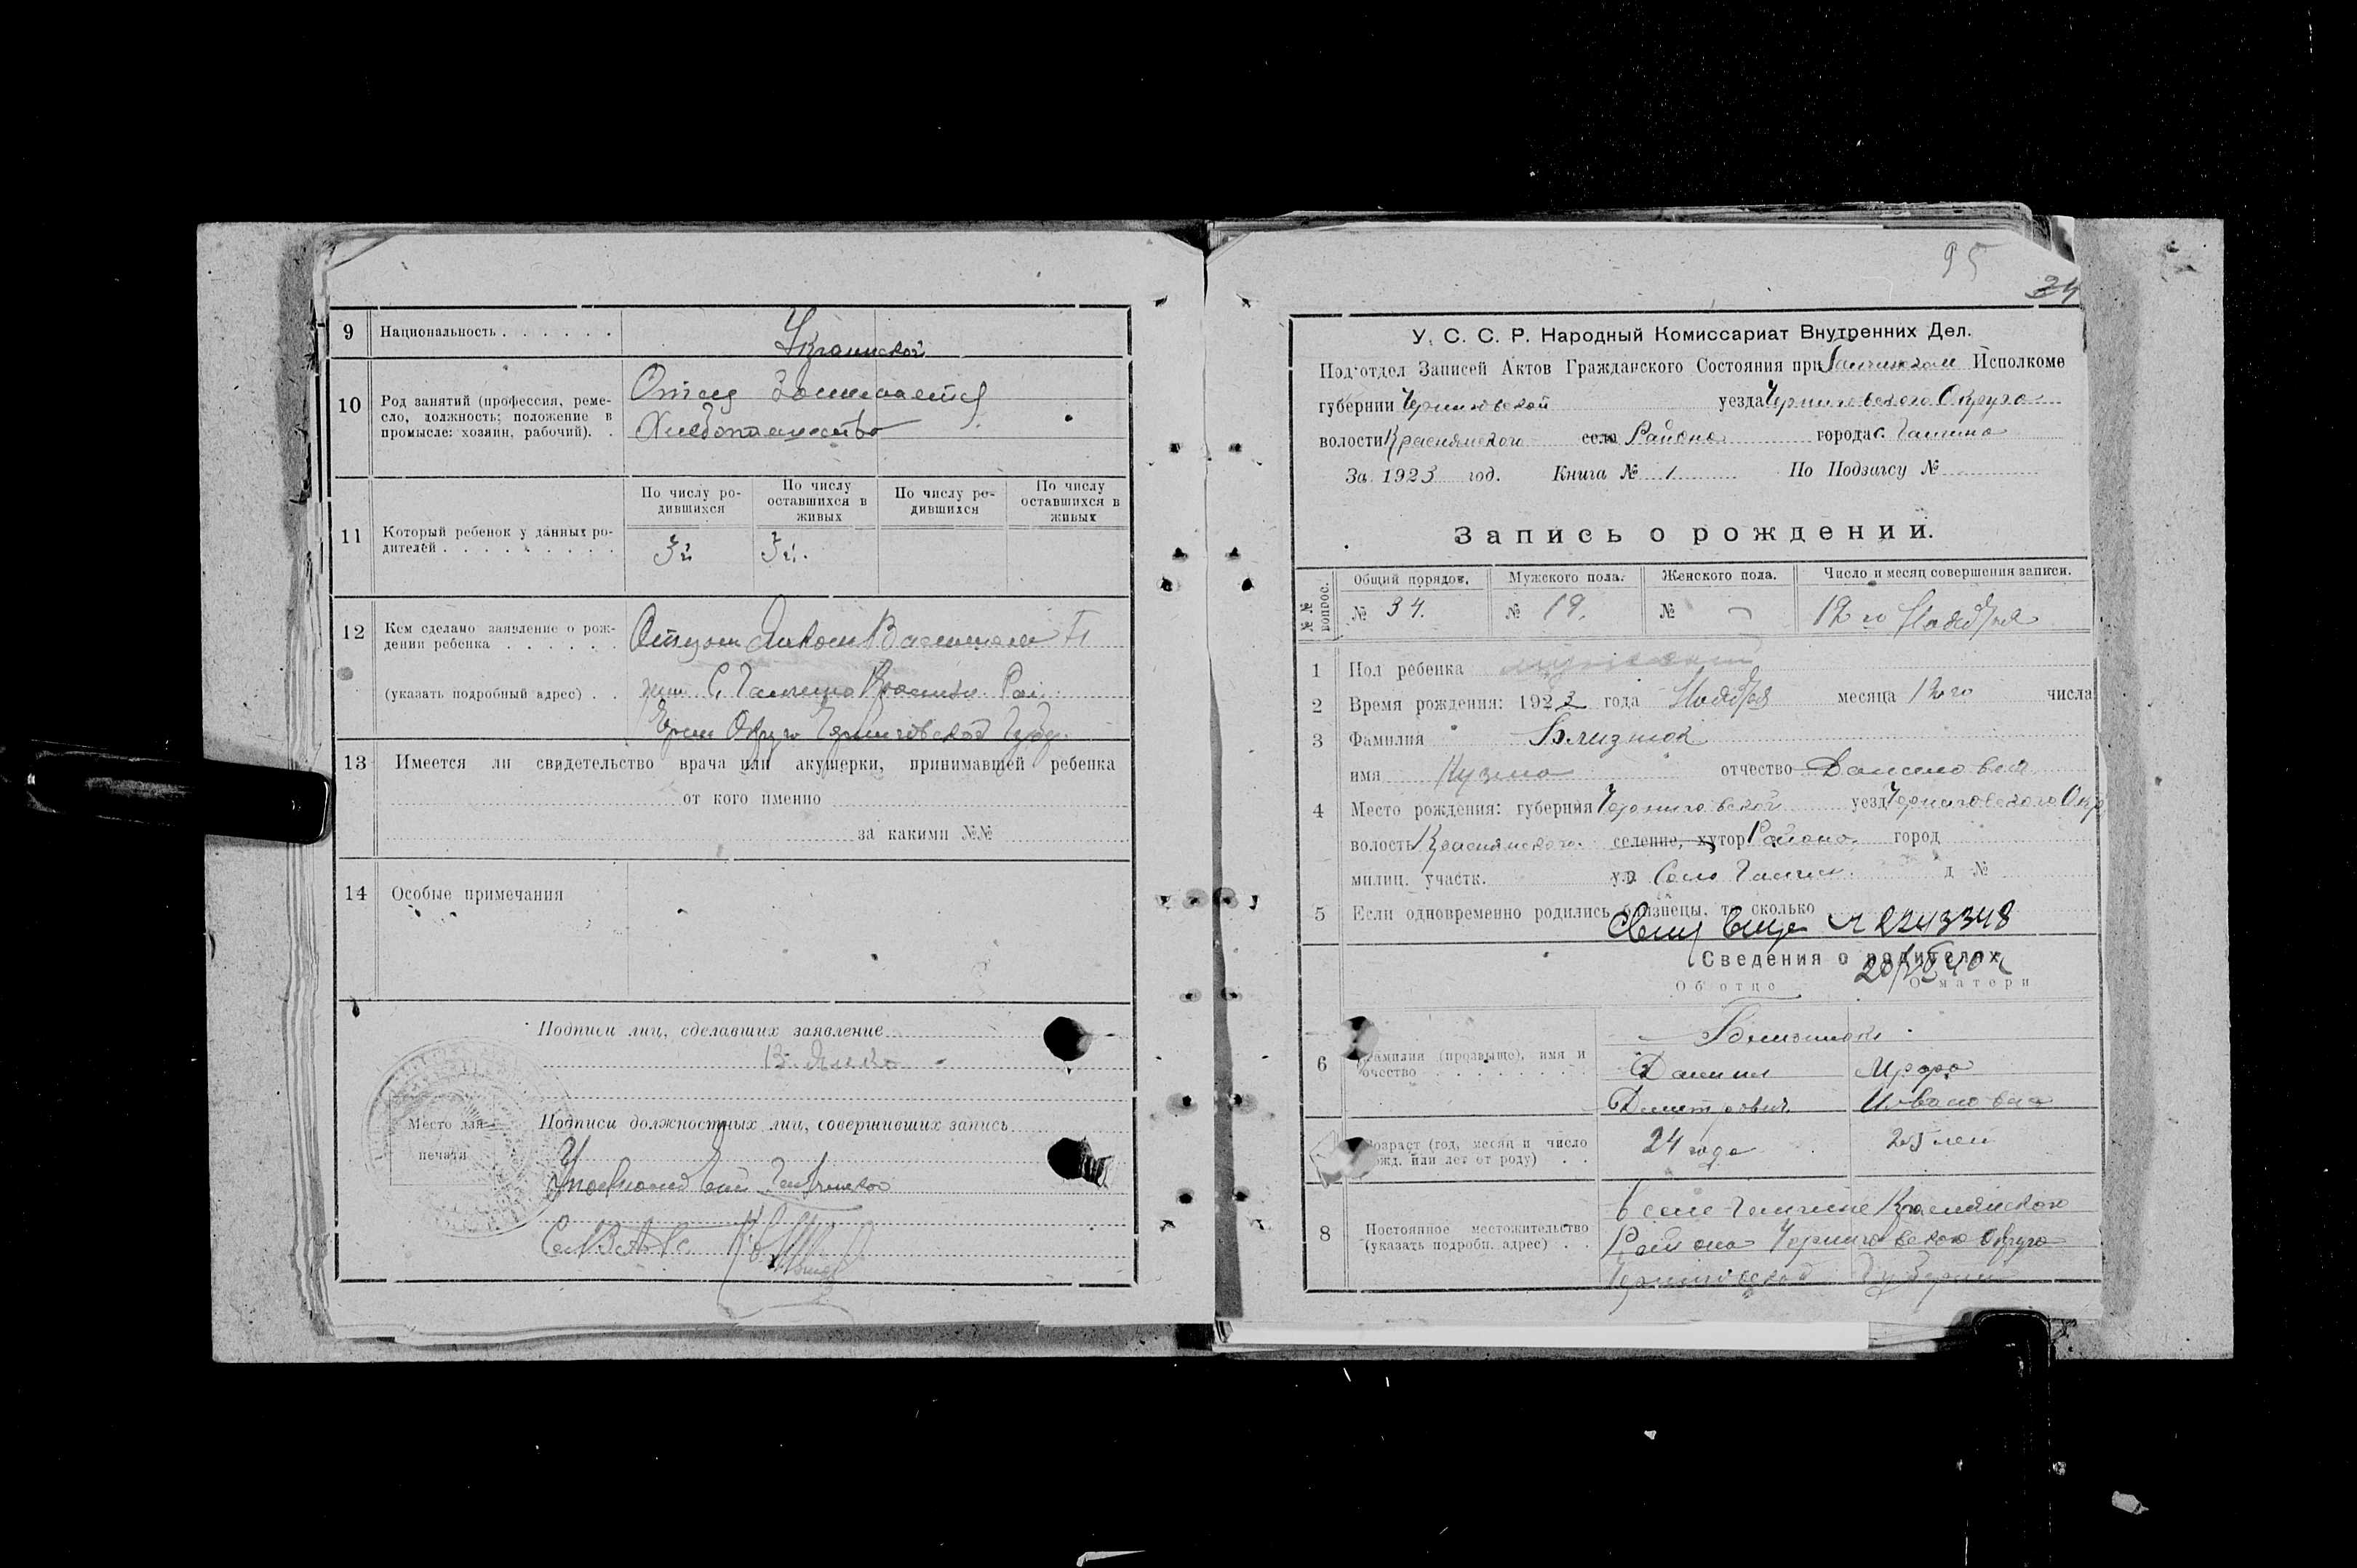 9 Национальность . . . . . .
Украинской
10 Род занятий (профессия, реме-
сло, должность; положение в
промысле: хозяин, рабочий). .
Отец Занимается
Хлебопашество
11 Который ребенок у данных ро-
дителей . . . . . . . . .
По числу ро-
дившихся
По числу
оставшихся в
живых
По числу ро-
дившихся
По числу
оставшихся в
живых
3й 3й.
12 Кем сделано заявление о рож-
дении ребенка . . . . . .
(указать подробный адрес) . .
Отцом
жит С.
Округа Черниговской Губ.
13 Имеется ли свидетельство врача или акушерки, принимавшей ребенка
от кого именно
за какими №№
14 Особые примечания
Подписи лиц, сделавших заявление
Место для
печати
Подписи должностных лиц, совершивших запись
95
34
У. С. С. Р. Народный Комиссариат Внутренних Дел.
Под‘отдел Записей Актов Гражданского Состояния при Исполкоме
губернии Черниговской уезда Черниговского Округа
волости Краснянского село Района города с.
За 1923 год. Книга № 1 По Подзагсу №
Запись о рождении.
№№ вопрос.
Общий порядов. Мужского пола. Женского пола. Число и месяц совершения записи.
№ 34. № 19. № — 12го Ноября
1 Пол ребенка мужской
2 Время рождения: 1923 года Ноября месяца 12го числа
3 Фамилия Близнюк
имя Кузьма отчество Данилович
4 Место рождения: губерния Черниговской уезд Черниговского Окр
волость Краснянского селение, хутор Района город
милиц. участк. ул. Село д №
5 Если одновременно родились близнецы, то сколько
№ 2243348
Сведения о родителях
Об отце О матери
6 Фамилия (прозвыще), имя и
отчество . . . . . . . .
Близнюк
Даниил
Дмитрович Ивановна
Возраст (год, месяц и число
рожд. или лет от роду) . .
24 года 25 лет
8 Постоянное местожительство
(указать подробн. адрес) . .
в селе Краснянского
Района Черниговского Округа
Черниговской Губернии